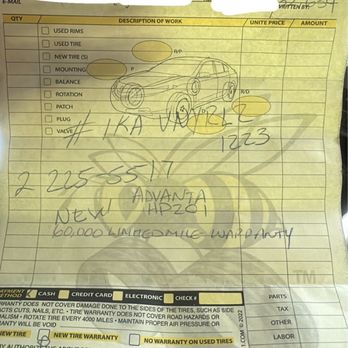 E-MAIL
WRITTEN BY:
QTY DESCRIPTION OF WORK UNITE PRICE AMOUNT
USED RIMS
USED TIRE R/P
NEW TIRE (S)
MOUNTING P
BALANCE
ROTATION R/D
PATCH
PLUG
VALVE
1223
2 225-5517
ADVANTA
NEW HPZ01
60,000 LIMITED MILE WARRANTY
TM
PAYMENT METHOD CASH CREDIT CARD ELECTRONIC CHECK # PARTS
WARRANTY DOES NOT COVER DAMAGE DONE TO THE SIDES OF THE TIRES, SUCH AS SIDE
CUTS, NAILS, ETC. • TIRE WARRANTY DOES NOT COVER ROAD HAZARDS OR TAX
ROTATE TIRE EVERY 4000 MILES • MAINTAIN PROPER AIR PRESSURE OR OTHER
WARRANTY WILL BE VOID
NEW TIRE WARRANTY NO WARRANTY ON USED TIRES LABOR
.COM © 2022